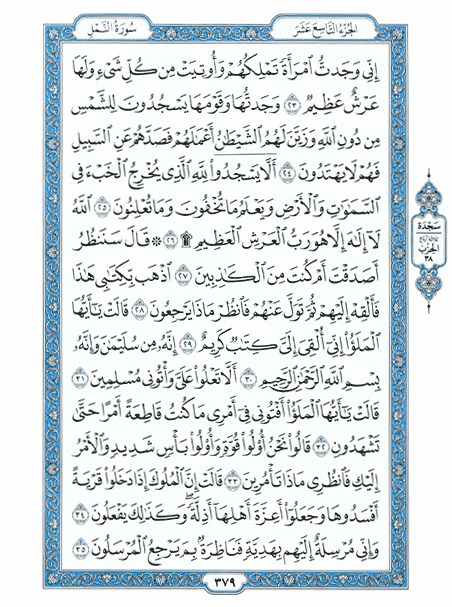 الجُزْءُ التَّاسِعَ عَشَرَ
سُورَةُ النَّمْلِ
إِنِّي وَجَدتُّ ٱمْرَأَةً تَمْلِكُهُمْ وَأُوتِيَتْ مِن كُلِّ شَىْءٍ وَلَهَا
عَرْشٌ عَظِيمٌ ٢٣ وَجَدتُّهَا وَقَوْمَهَا يَسْجُدُونَ لِلشَّمْسِ
مِن دُونِ ٱللَّهِ وَزَيَّنَ لَهُمُ ٱلشَّيْطَٰنُ أَعْمَٰلَهُمْ فَصَدَّهُمْ عَنِ ٱلسَّبِيلِ
فَهُمْ لَا يَهْتَدُونَ ٢٤ أَلَّا يَسْجُدُوا۟ لِلَّهِ ٱلَّذِى يُخْرِجُ ٱلْخَبْءَ فِى
ٱلسَّمَٰوَٰتِ وَٱلْأَرْضِ وَيَعْلَمُ مَا تُخْفُونَ وَمَا تُعْلِنُونَ ٢٥ ٱللَّهُ
لَآ إِلَٰهَ إِلَّا هُوَ رَبُّ ٱلْعَرْشِ ٱلْعَظِيمِ ۩ ٢٦ ۞ قَالَ سَنَنظُرُ
أَصَدَقْتَ أَمْ كُنتَ مِنَ ٱلْكَٰذِبِينَ ٢٧ ٱذْهَب بِّكِتَٰبِى هَٰذَا
فَأَلْقِهْ إِلَيْهِمْ ثُمَّ تَوَلَّ عَنْهُمْ فَٱنظُرْ مَاذَا يَرْجِعُونَ ٢٨ قَالَتْ يَٰٓأَيُّهَا
ٱلْمَلَؤُا۟ إِنِّىٓ أُلْقِىَ إِلَىَّ كِتَٰبٌ كَرِيمٌ ٢٩ إِنَّهُۥ مِن سُلَيْمَٰنَ وَإِنَّهُۥ
بِسْمِ ٱللَّهِ ٱلرَّحْمَٰنِ ٱلرَّحِيمِ ٣٠ أَلَّا تَعْلُوا۟ عَلَىَّ وَأْتُونِى مُسْلِمِينَ ٣١
قَالَتْ يَٰٓأَيُّهَا ٱلْمَلَؤُا۟ أَفْتُونِى فِىٓ أَمْرِى مَا كُنتُ قَاطِعَةً أَمْرًا حَتَّىٰ
تَشْهَدُونِ ٣٢ قَالُوا۟ نَحْنُ أُو۟لُوا۟ قُوَّةٍ وَأُو۟لُوا۟ بَأْسٍ شَدِيدٍ وَٱلْأَمْرُ
إِلَيْكِ فَٱنظُرِى مَاذَا تَأْمُرِينَ ٣٣ قَالَتْ إِنَّ ٱلْمُلُوكَ إِذَا دَخَلُوا۟ قَرْيَةً
أَفْسَدُوهَا وَجَعَلُوٓا۟ أَعِزَّةَ أَهْلِهَآ أَذِلَّةً ۖ وَكَذَٰلِكَ يَفْعَلُونَ ٣٤
وَإِنِّى مُرْسِلَةٌ إِلَيْهِم بِهَدِيَّةٍ فَنَاظِرَةٌۢ بِمَ يَرْجِعُ ٱلْمُرْسَلُونَ ٣٥
سَجدَة
ثلاثة أرباع
الحِزب
٣٨
٣٧٩